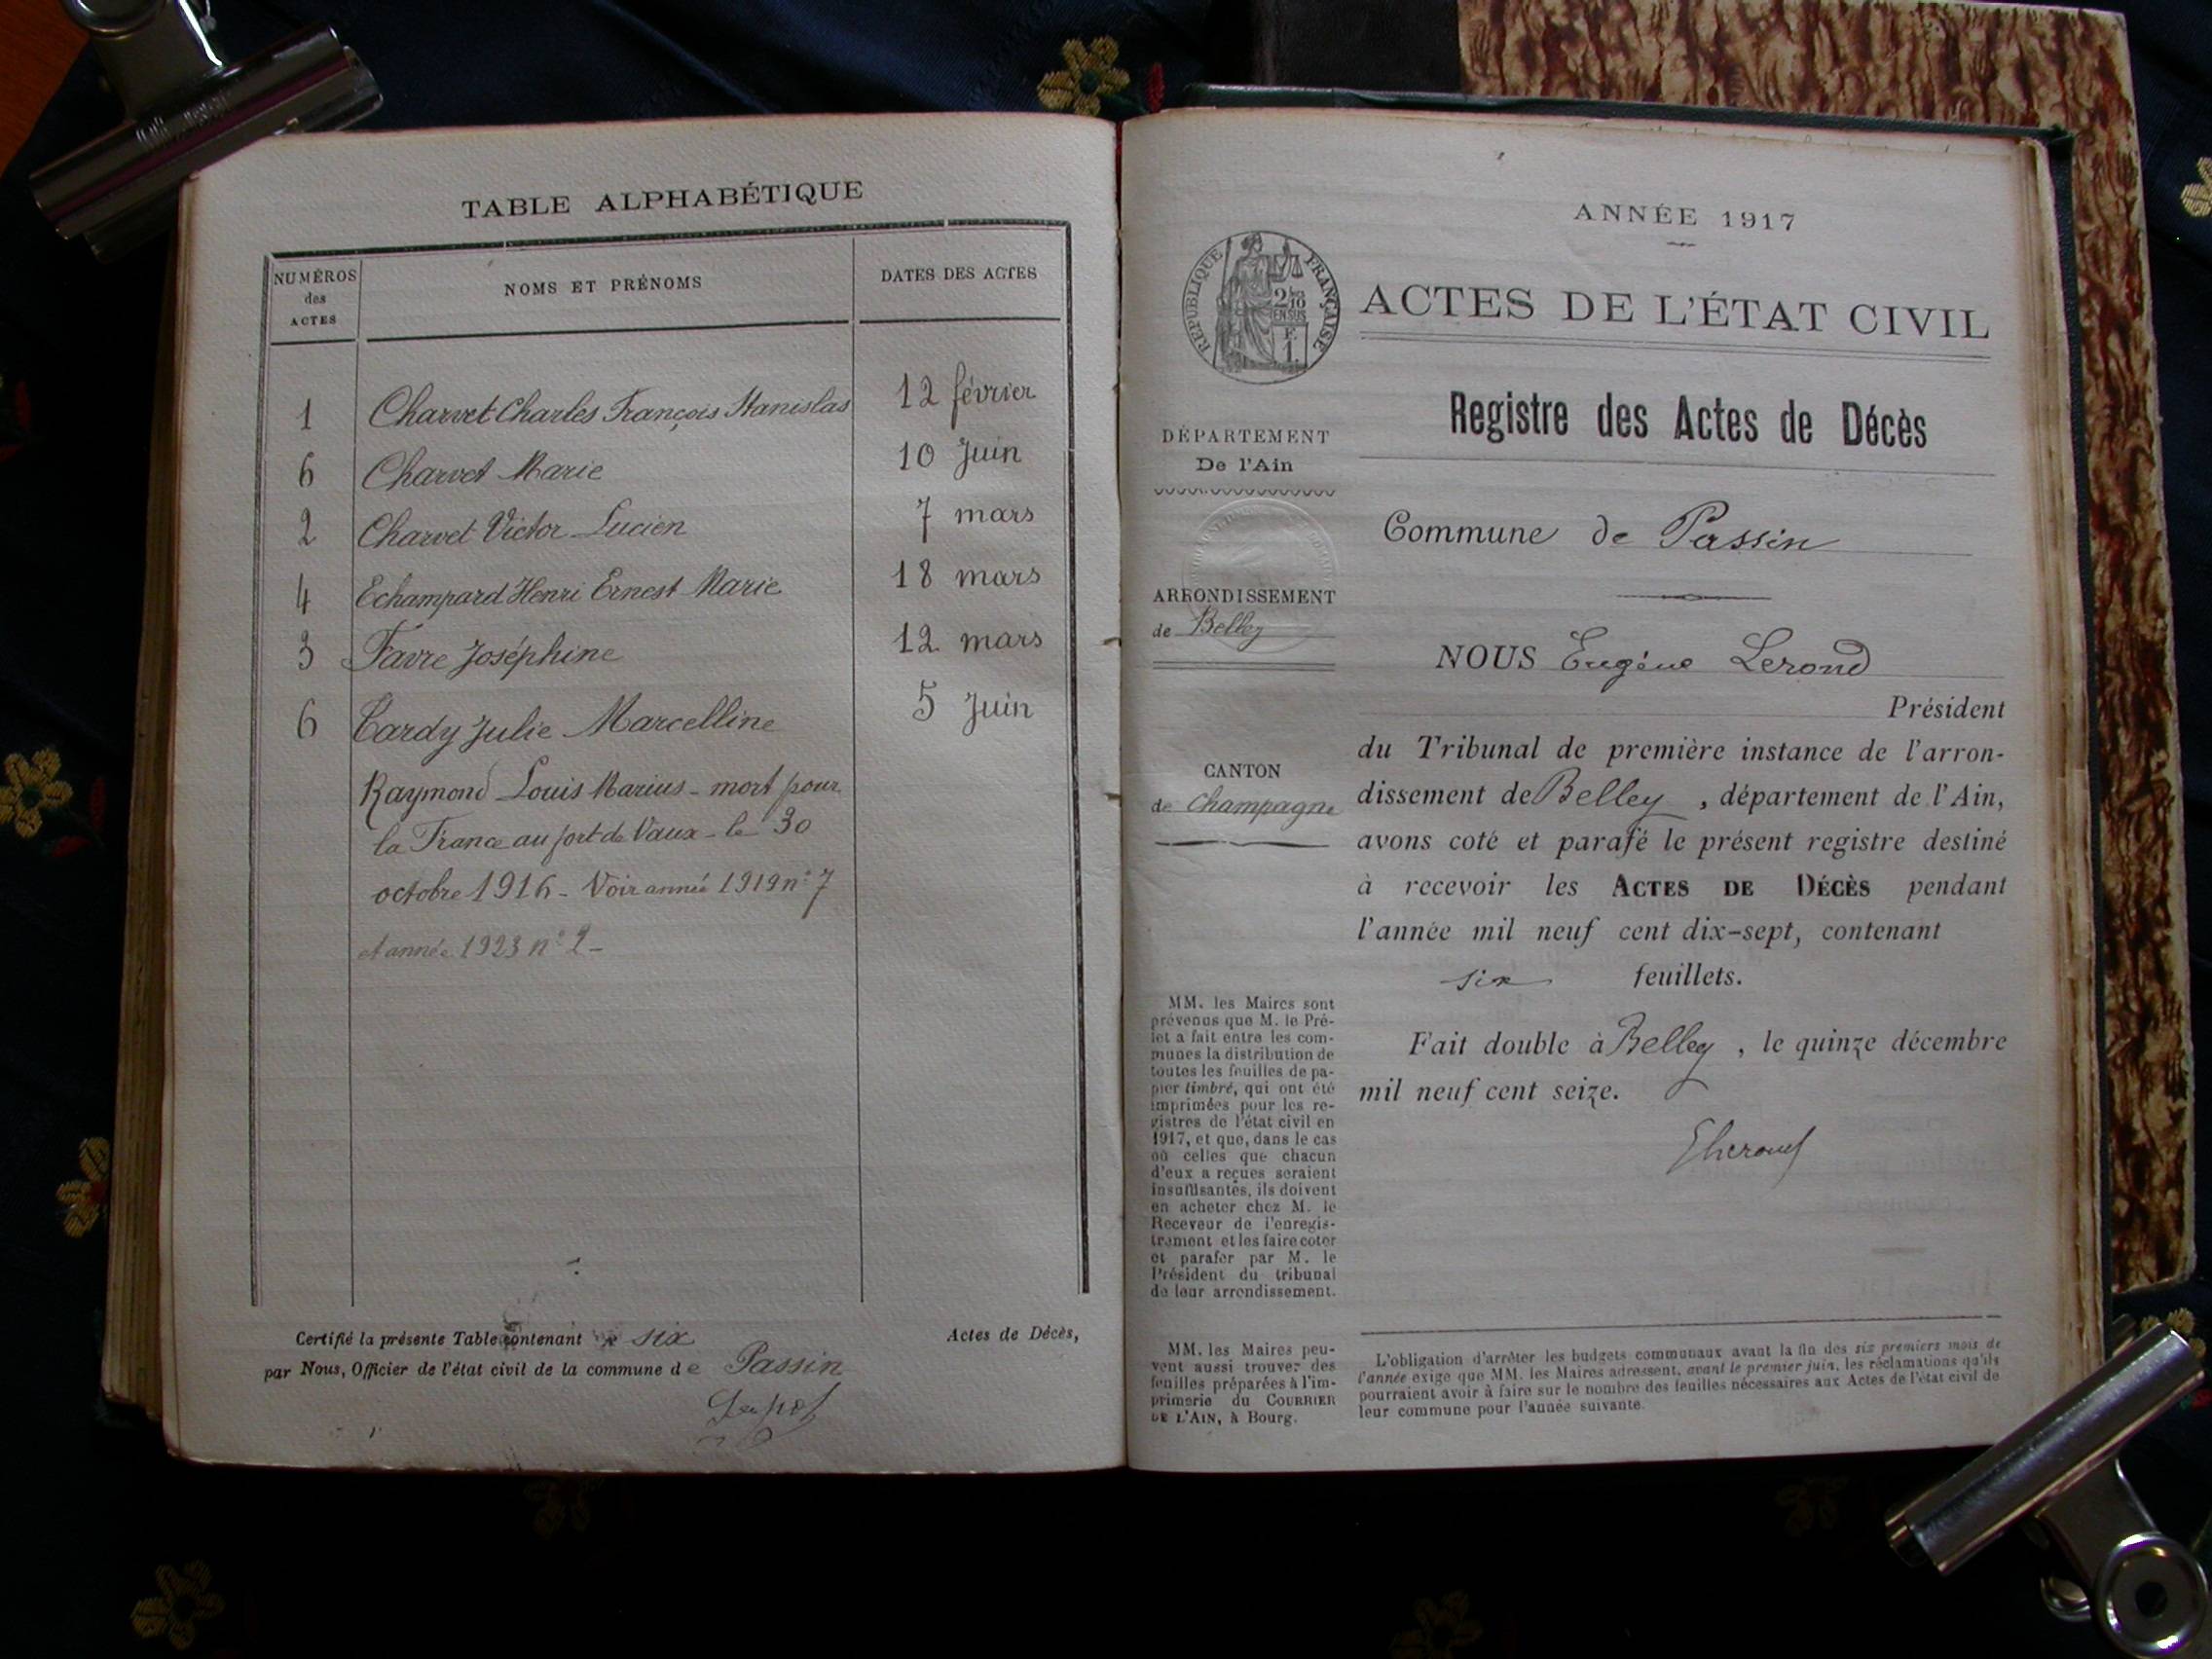 TABLE ALPHABÉTIQUE
NUMÉROS des ACTES
NOMS ET PRÉNOMS
DATES DES ACTES
1 Charvet Charles François Stanislas 12 février
6 Charvet Marie 10 Juin
2 Charvet Victor Lucien 7 mars
4 Echampard Henri Ernest Marie 18 mars
3 Favre Joséphine 12 mars
6 Tardy Julie Marcelline 5 Juin
Raymond Louis Marius - mort pour
la France au fort de Vaux - le 30
octobre 1916 - Voir année 1919 n° 7
et année 1923 n° 2 -
Certifié la présente Table contenant six Actes de Décès,
par Nous, Officier de l'état civil de la commune de Passin
ANNÉE 1917
RÉPUBLIQUE FRANÇAISE
2/10
EN SUS
F.
1.
ACTES DE L'ÉTAT CIVIL
Registre des Actes de Décès
DÉPARTEMENT
De l'Ain
Commune de Passin
ARRONDISSEMENT
de Belley
NOUS Eugène Lerond
Président
du Tribunal de première instance de l'arron-
dissement de Belley, département de l'Ain,
avons coté et parafé le présent registre destiné
à recevoir les ACTES DE DÉCÈS pendant
l'année mil neuf cent dix-sept, contenant
six feuillets.
CANTON
de Champagne
Fait double à Belley, le quinze décembre
mil neuf cent seize.
MM. les Maires sont
prévenus que M. le Pré-
fet a fait entre les com-
munes la distribution de
toutes les feuilles de pa-
pier timbré, qui ont été
imprimées pour les re-
gistres de l'état civil en
1917, et que, dans le cas
où celles que chacun
d'eux a reçues seraient
insuffisantes, ils doivent
en acheter chez M. le
Receveur de l'enregis-
trement et les faire coter
et parafer par M. le
Président du tribunal
de leur arrondissement.
MM. les Maires peu-
vent aussi trouver des
feuilles préparées à l'im-
primerie du COURRIER
DE L'AIN, à Bourg.
L'obligation d'arrêter les budgets communaux avant la fin des six premiers mois de
l'année exige que MM. les Maires adressent, avant le premier juin, les réclamations qu'ils
pourraient avoir à faire sur le nombre des feuilles nécessaires aux Actes de l'état civil de
leur commune pour l'année suivante.